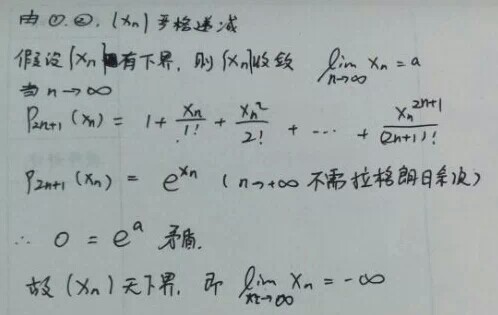 由①.②. {xn} 严格递减
假设{xn}有下界, 则{xn}收敛 lim n→∞ xn = a
当 n → ∞
P2n+1 (xn) = 1 + xn/1! + xn²/2! + ··· + xn^2n+1/(2n+1)!
P2n+1 (xn) = e^xn ( n→+∞ 不需拉格朗日余项)
∴ 0 = e^a 矛盾.
故 {xn} 无下界, 即 lim n→∞ xn = -∞